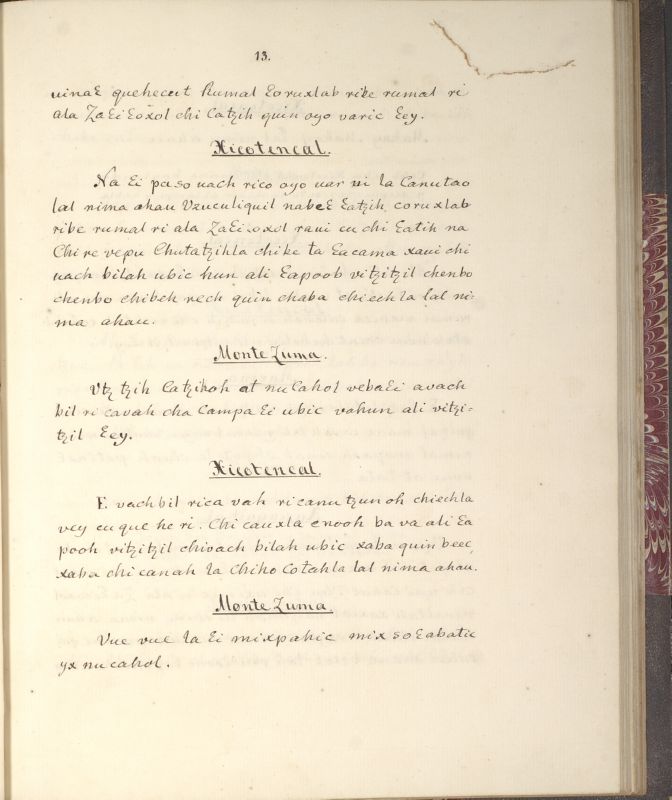 13.
uinaɛ quehecut Rumal ɛoruxlab ribe rumal ri
ala Zaɛiɛoxol chi Catzih quin oyo varic ɛey.
Xicotencal.
Na ɛi paso uach rico oyo uar ri la Canutao
lal nima ahau Vzuculiquil nabeɛ ɛatzih, coruxlab
ribe rumal ri ala Zaɛi.oxol raui cu chi ɛatih na
Chi re vepu Chutatzihla chike ta ɛacama xaui chi
uach bilah ubic hun ali ɛapoob vitzitzil chenbo
chenbo chibeh rech quin chaba chiech la lal ni-
ma ahau.
Monte Zuma.
Vtz tzih Catzihoh at nu Cahol vebaɛi avach
bil ri cavah cha Campa ɛi ubic vahun ali vitzi-
tzil ɛey.
Xicotencal.
E vachbil rica vah ricanu tzunoh chiechla
vey cu que he ri. Chi cauxla cnooh ba va ali ɛa
pooh vitzitzil chivach bilah ubic xaba quin beec,
xaba chi canah la Chiho Cotahla lal nima ahau.
Monte Zuma.
Vue vue la ɛi mixpahic mix so ɛabatic
yx nu cahol.